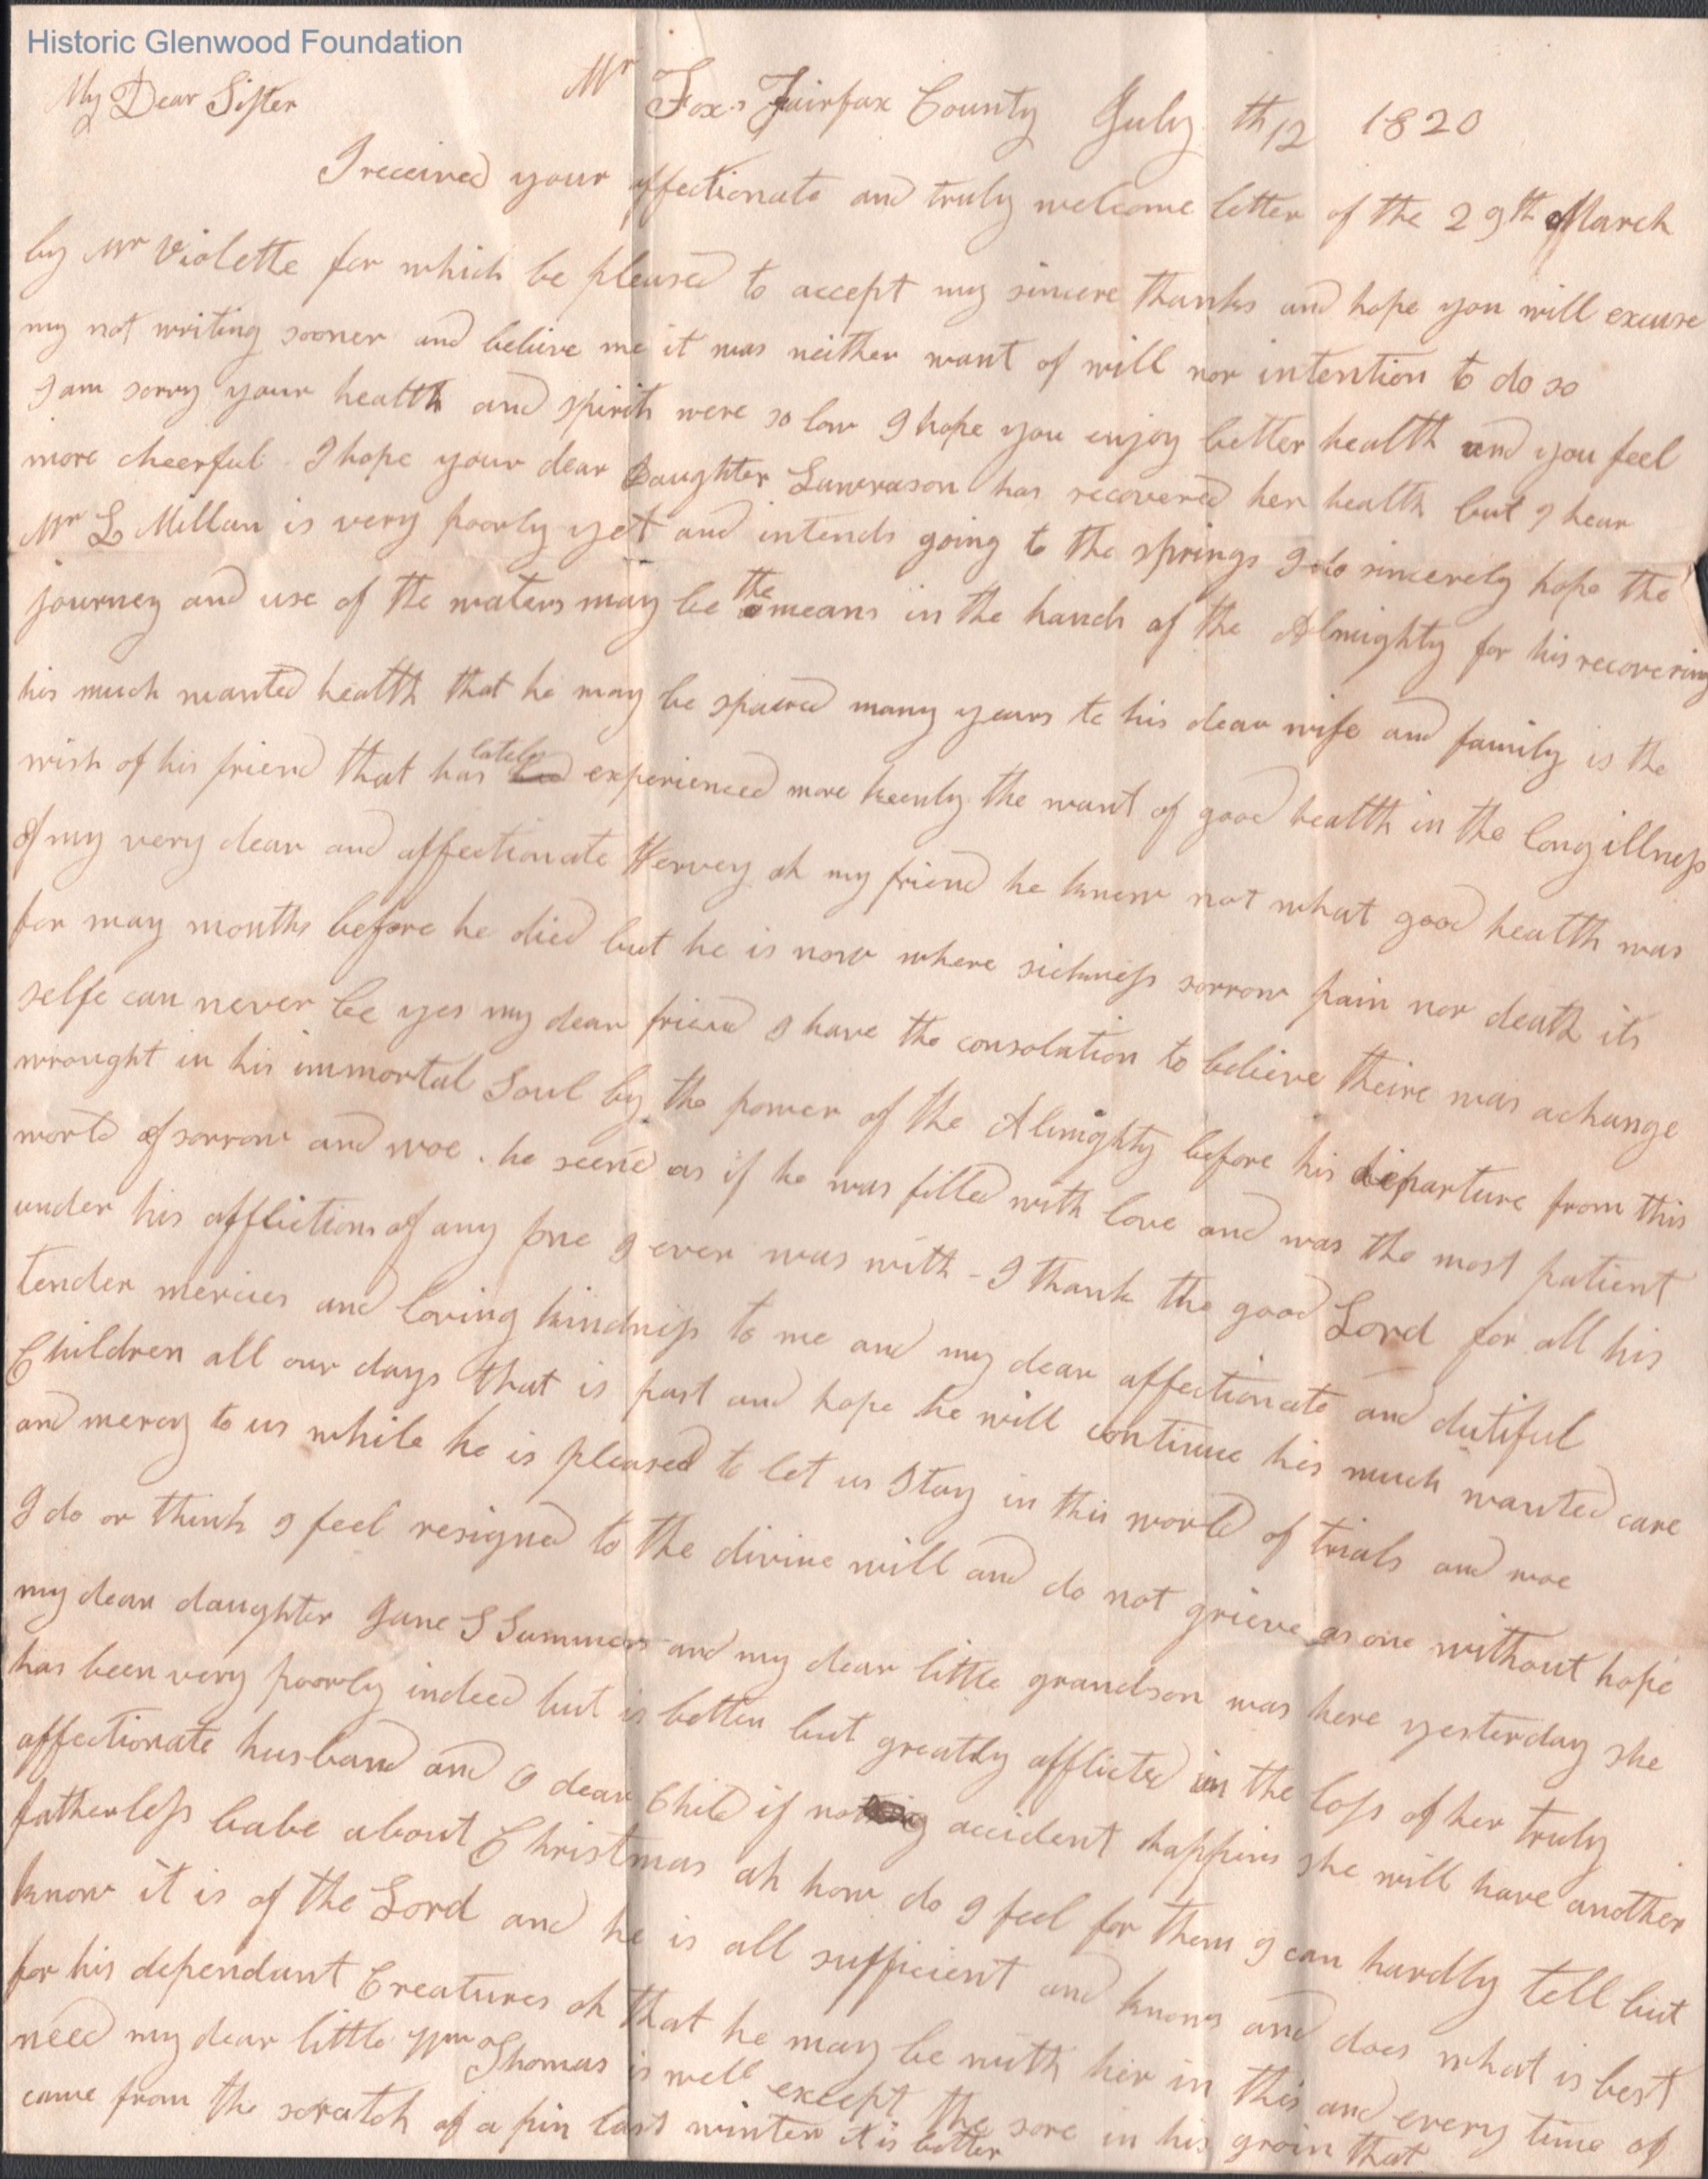 Historic Glenwood Foundation
My Dear Sister Mr Fox's Fairfax County July th 12 1820
I received your affectionate and truly welcome letter of the 29th of March
by Mr Violette for which be pleased to accept my sincere thanks and hope you will excuse
my not writing sooner and believe me it was neither want of will nor intention to do so
I am sorry your health and spirits were so low I hope you enjoy better health and you feel
more cheerful I hope your dear Daughter Lawrason has recovered her health but I hear
Mr L Millan is very poorly yet and intends going to the springs I do sincerely hope the
journey and use of the waters may be the means in the hands of the Almighty for his recovering
his much wanted health that he may be spaired many years to his dear wife and family is the
wish of his friend that has lately experienced more keenly the want of good health in the long illness
of my very dear and affectionate Hervey ah my friend he knew not what good health was
for may months before he died but he is now where sickness sorrow pain nor death its
selfe can never be yes my dear friend I have the consolation to believe theire was a change
wrought in his immortal Soul by the power of the Almighty before his departure from this
world of sorrow and woe . he seem'd as if he was filled with love and was the most patient
under his afflictions of any one I ever was with - I thank the good Lord for all his
tender mercies and loving kindness to me and my dear affectionate and dutiful
Children all our days that is past and hope he will continue his much wanted care
and mercy to us while he is pleased to let us Stay in this world of trials and woe
I do or think I feel resigned to the divine will and do not grieve as one without hope
my dear daughter Jane S Summers and my dear little grandson was here yesterday she
has been very poorly indeed but is better but greatly afflicted in the loss of her truly
affectionate husband and O dear Child if no accident happins she will have another
fatherless babe about Christmas ah how do I feel for them I can hardly tell but
know it is of the Lord and he is all sufficient and knows and does what is best
for his dependant Creatures oh that he may be with her in this and every time of
need my dear little Wm Thomas is well except the sore in his groin that
came from the scratch of a pin last winter it is better